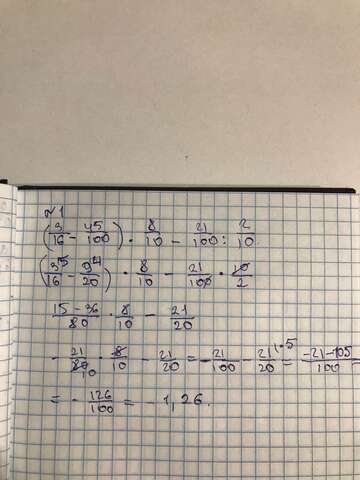 №1
(3/16 - 45/100) · 8/10 - 21/100 : 2/10
(3^5/16 - 9^4/20) · 8/10 - 21/100 · 10/2
15-36/80 · 8/10 - 21/20
- 21/80 10 · 8/10 - 21/20 = - 21/100 - 21/20 1·5 = -21-105/100 =
= - 126/100 = - 1,26.